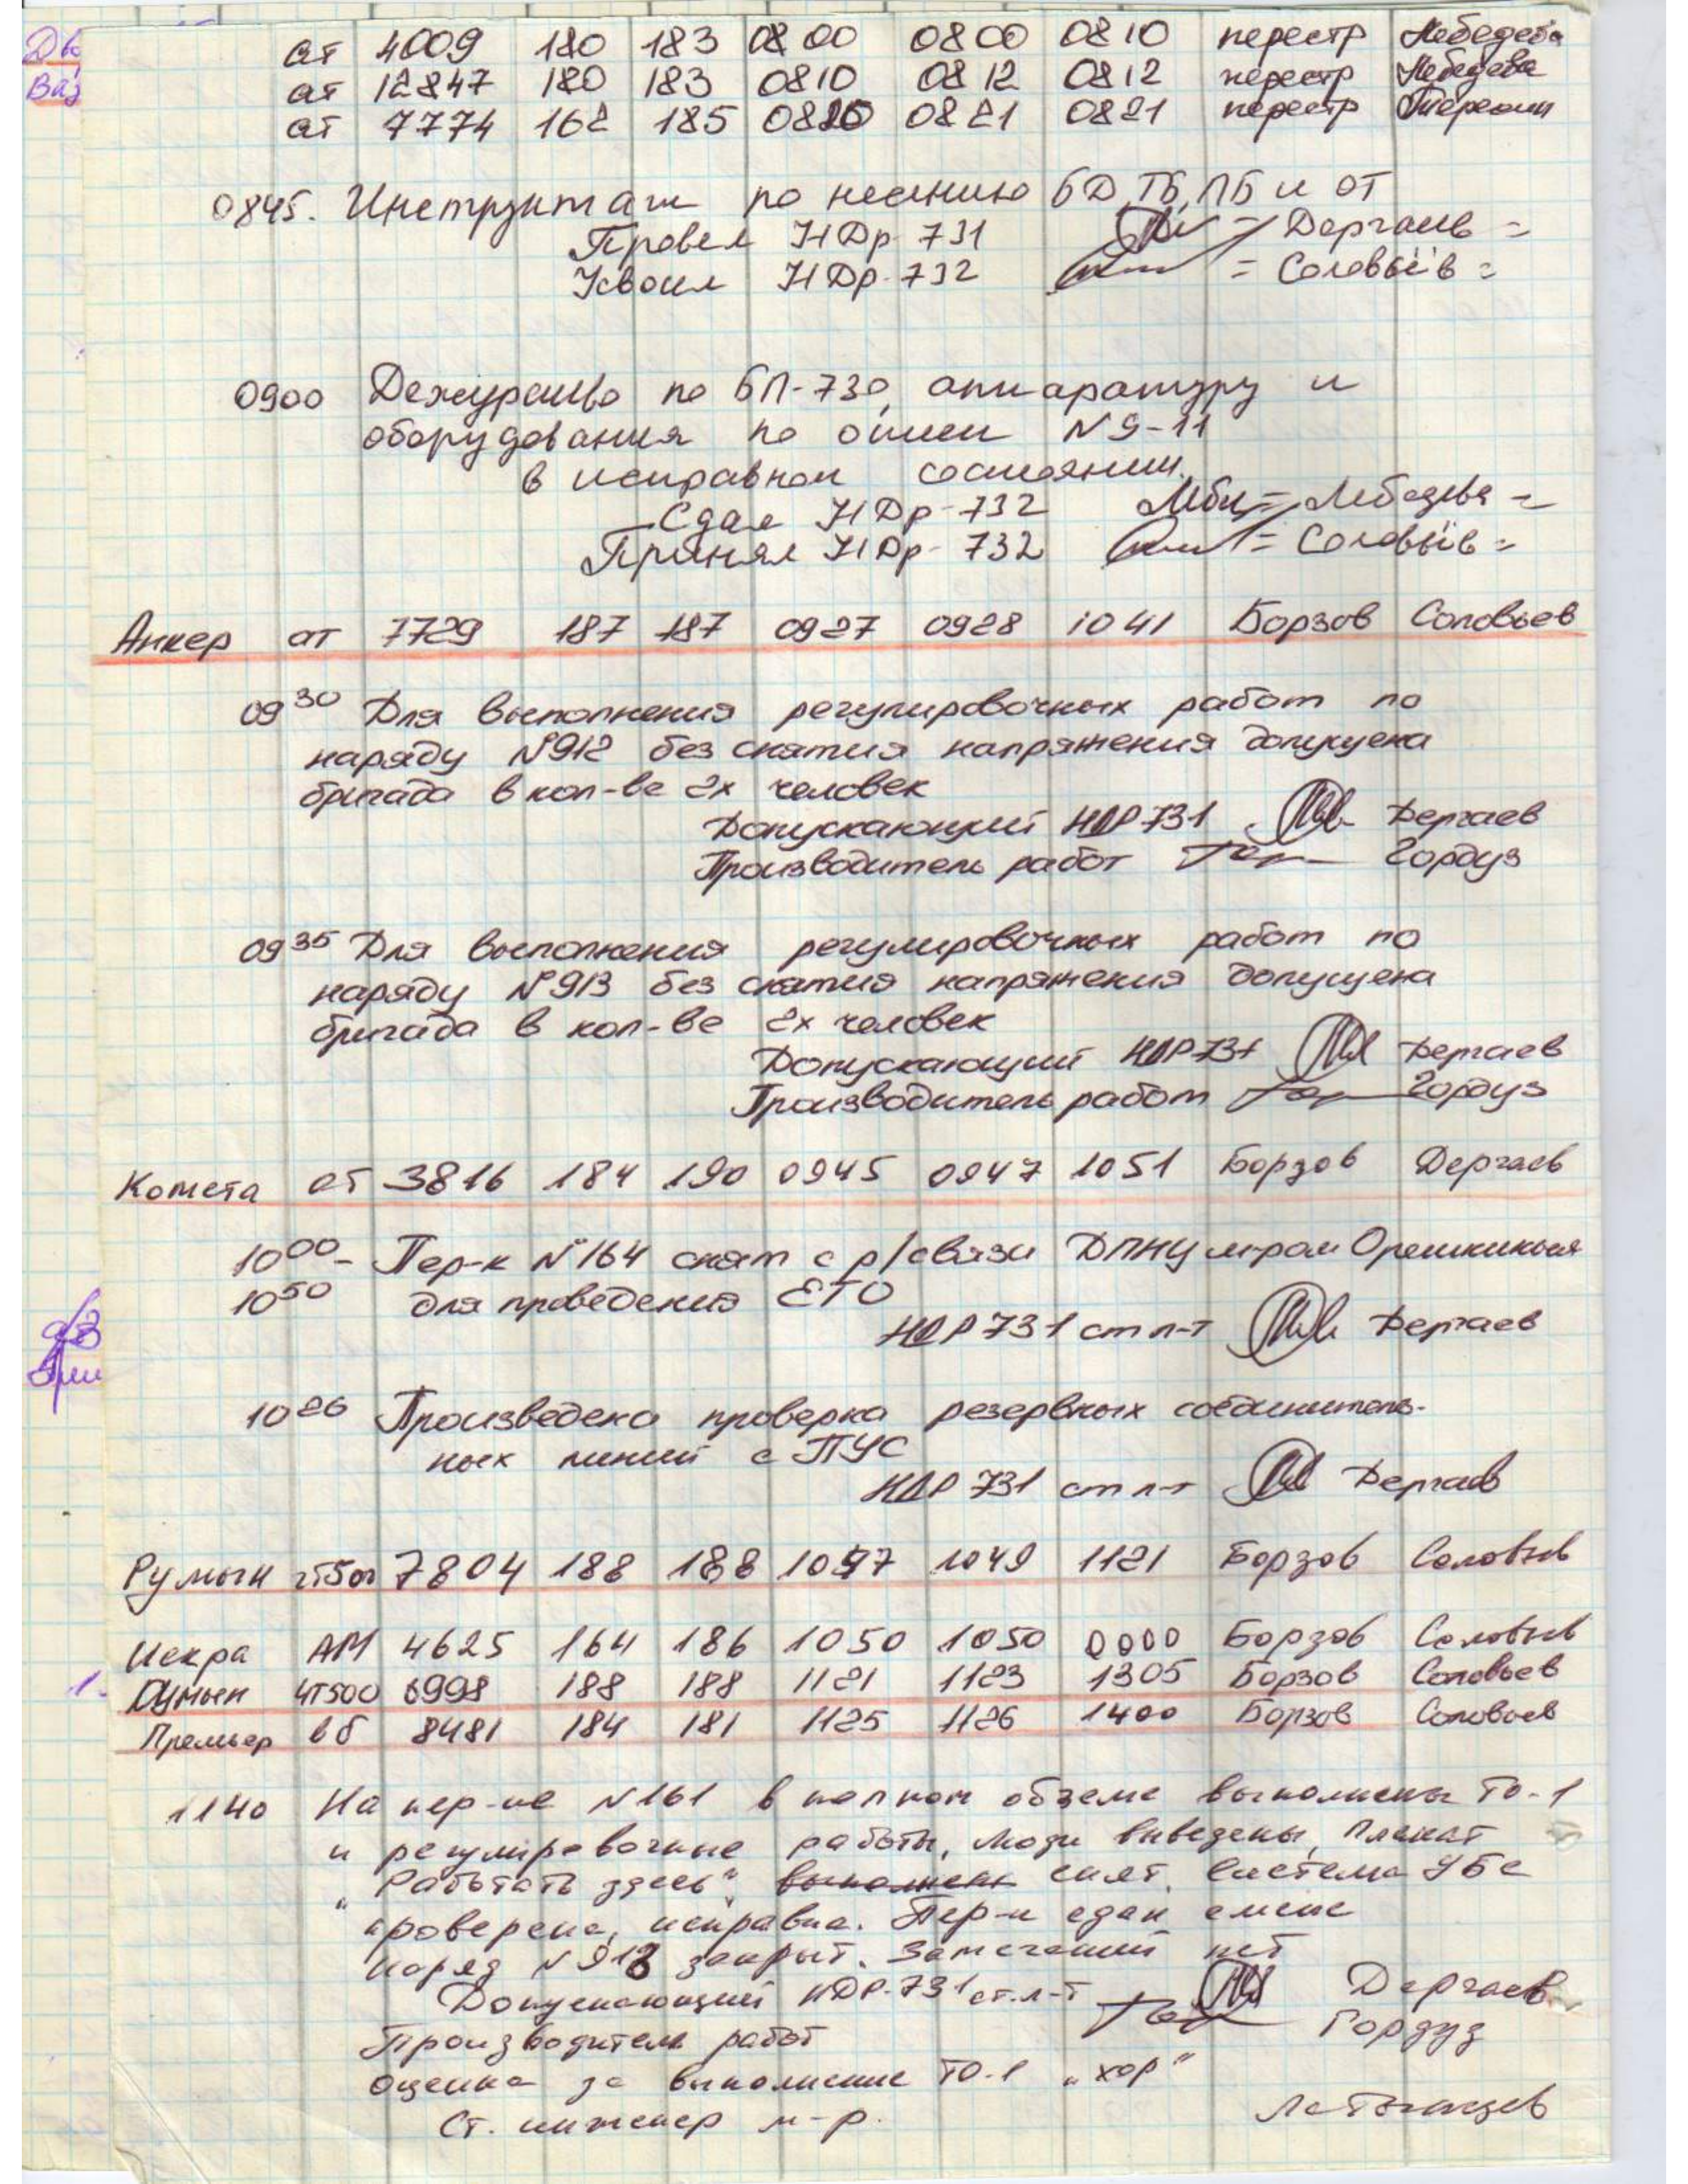 Дв
Ваз
ат 4009 180 183 0800 0800 0810 перестр Лебедева
ат 12847 180 183 0810 0812 0812 перестр Лебедева
ат 7774 162 185 0820 0821 0821 перестр
0845. Инструктаж по несению БД, ТБ, ПБ и ОТ
Провел НДр-731 = Дергаев =
Усвоил НДр-732 = Соловьёв =
0900 Дежурство по БП-730, аппаратуру и
оборудования по описи N 9-11
в исправном состоянии.
Сдал НДр-732 = Лебедева =
Принял НДр-732 = Соловьёв =
Анкер ат 7729 187 187 0927 0928 1041 Борзов Соловьев
09 30 Для выполнения регулировочных работ по
наряду №912 без снятия напряжения допущена
бригада в кол-ве 2х человек
Допускающий НДР 731 Дергаев
Производитель работ Гордуз
09 35 Для выполнения регулировочных работ по
наряду №913 без снятия напряжения допущена
бригада в кол-ве 2х человек
Допускающий НДР 731 Дергаев
Производитель работ Гордуз
Комета ат 3816 184 190 0945 0947 1051 Борзов Дергаев
10 00 - Пер-к №164 снят с р/связи ДПНУ м-ром Орешкиным
10 50 для проведения ЕТО
НДР 731 ст л-т Дергаев
10 26 Произведена проверка резервных соединитель-
ных линий с ПУС
НДР 731 ст л-т Дергаев
Румын чт500 7804 188 188 1047 1049 1121 Борзов Соловьев
Искра АМ 4625 164 186 1050 1050 0000 Борзов Соловьев
1. Румын ЧТ500 6998 188 188 1121 1123 1305 Борзов Соловьев
Премьер вб 8481 184 181 1125 1126 1400 Борзов Соловьев
1140 На пер-ке N161 в полном объеме выполнены ТО-1
и регулировочные работы, люди выведены, плакат
"Работать здесь" выполнены снят. Система УБС
проверена, исправна. Пер-к сдан смене
наряд N 913 закрыт. Замечаний нет
Допускающий НДР-731 ст.л-т Дергаев
Производитель работ Гордуз
Оценка за выполнение ТО-1 „хор"
Ст. инженер м-р.